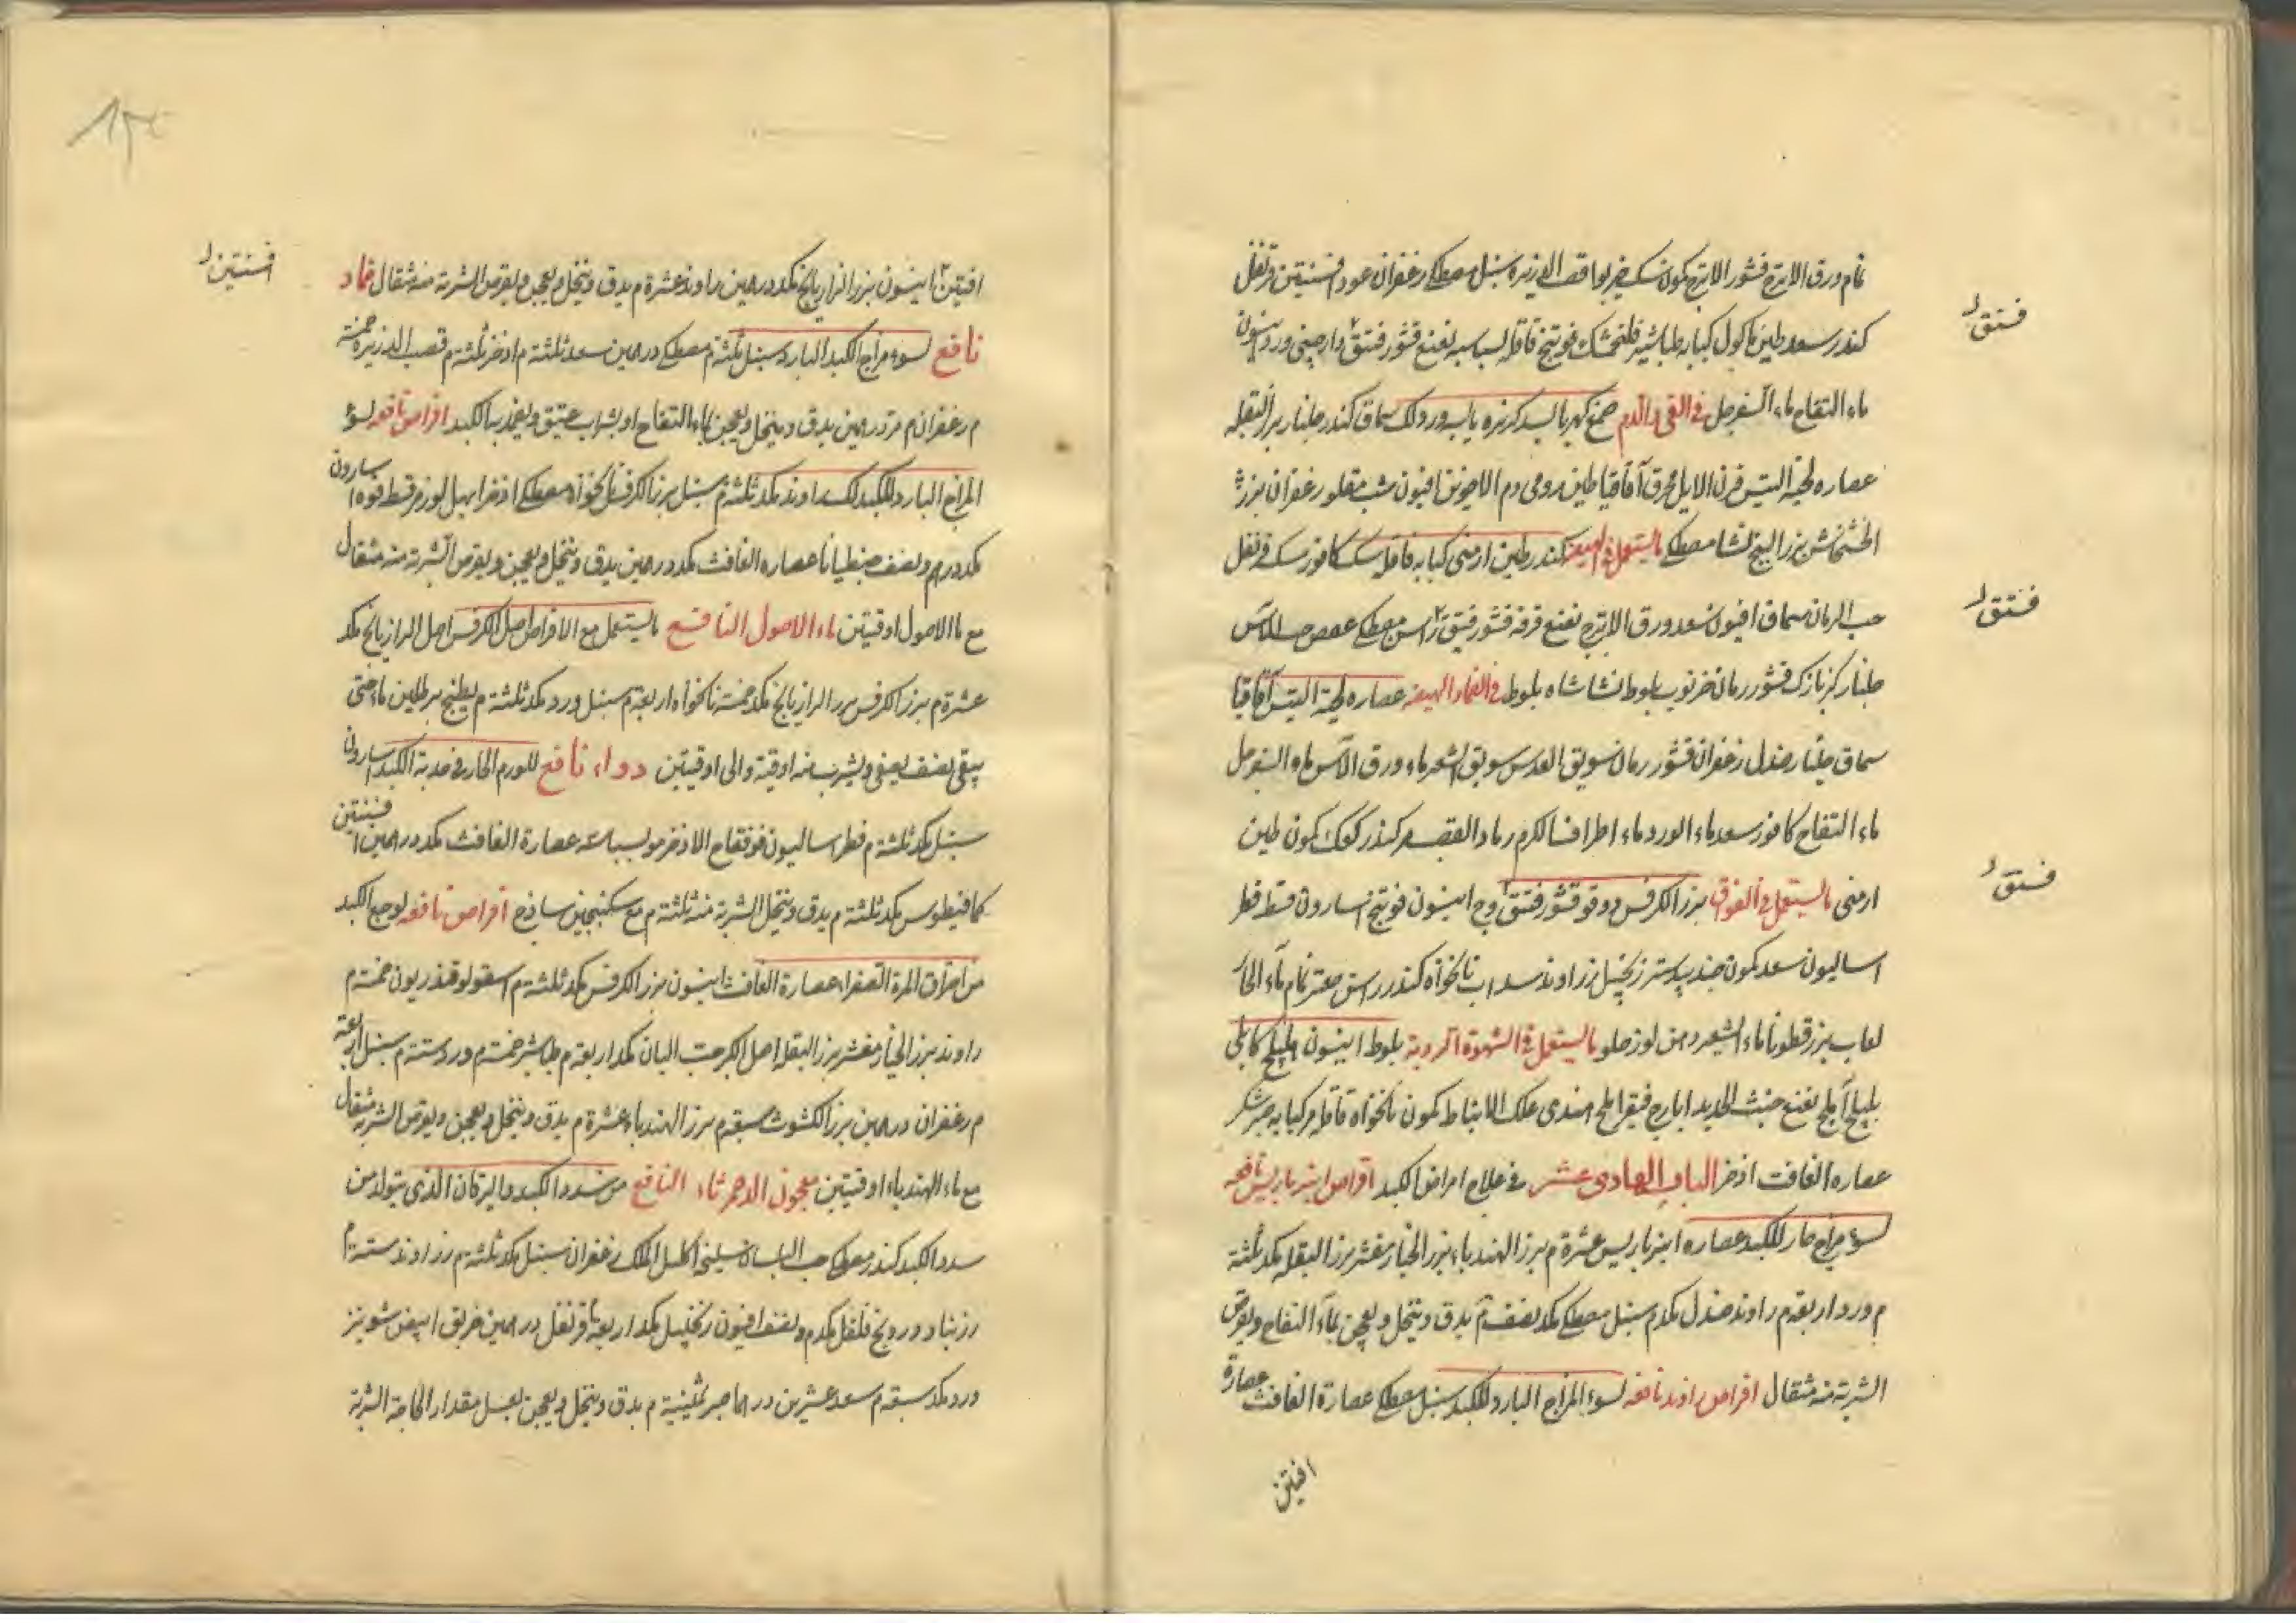 نمام ورق الاترج قشور الاترج كمون سك خيربوا قصب الذريره سنبل مصطكى زعفران عود افسنتين قرنفل
كندر سعد طين ماكول كبابه طباشير فلنجمشك فوتنج قاقله بسباسه نعنع قشور فتنق دارصينى ورد
فستق
ماء التفاح ماء السفرجل فى القى والدم صمغ كهربا بسد كزبره يابسه ورد لك سماق كندر جلنار بزر البقله
عصاره لحيه التيس قرن الايل محرق اقاقيا طين رومى دم الاخوين افيون شب مقلو زعفران بزر
الخشخاش بزر البنج نشا مصطكى ما يستعمل فى الهيضه كندر طين ارمنى كبابه قاقله سك كافور سك قرنفل
حب الرمان سماق افيون سعد ورق الاترج نعنع قرفه قشور فتنق راسن مصطكى عفص حب الآس
فستق
جلنار كزمازك قشور رمان خرنوب بلوط نشا شاه بلوط فى الضماد الهيضه عصاره لحية التيس اقاقيا
سماق جلنار صندل زعفران قشور رمان سويق العدس سويق الشعير ماء ورق الآس ماء السفرجل
ماء التفاح كافور سعد ماء الورد ماء اطراف الكرم رماد القصب كندر كعك كمون طين
ارمنى ما يستعمل فى الفواق بزر الكرفس دوقو قشور فتنق وج انيسون فوتنج اسارون قسط فطر
فستق
اساليون سعد كمون جندبيدستر زنجبيل زراوند سداب نانخواه كندر راسن صعتر نمام ماء الحار
لعاب بزر قطونا ماء الشعير دهن لوز حلو ما يستعمل فى الشهوة الرديه بلوط انيسون هليلج كابلى
بليلج آملج نعنع خبث الحديد ايارج فيقرا ملح هندى علك الانباط كمون نانخواه قاقله كبابه
عصاره الغافت اذخر الباب الحادى عشر فى علاج امراض الكبد اقراص انبرباريس نافعه
لسوء مزاج حار للكبد عصاره انبرباريس عشرة م بزر الهندباء بزر الخيار مقشر بزر البقله مكد ثلثة
م ورد اربعه م راوند صندل مكد م سنبل مصطكى مكد نصف م يدق وينخل ويعجن بماء التفاح ويقرص
الشربة منه مثقال اقراص راوند نافعه لسوء المزاج البارد للكبد سنبل مصطكى عصارة الغافث عصارة
افتتين
افتتين انيسون بزر الرازيانج مكد درهمين راوند عشرة م يدق وينخل ويعجن ويقرص الشربة منه مثقال ضماد
افسنتين
نافع لسوء مزاج الكبد البارد سنبل ثلثة م مصطكى درهمين سعد ثلثة م اذخر ثلثة م قصب الذريره خمسة
م زعفران م مر درهمين يدق وينخل ويعجن بماء التفاح او بشراب عتيق ويضمد به الكبد اقراص نافعه لسوء
المزاج البارد للكبد لك راوند مكد ثلثة م سنبل بزر الكرفس نانخواه مصطكى اذخر ابهل لوز مر قسط فوه اسارون
مكد درهم ونصف جنطيانا عصاره الغافث مكد درهمين يدق وينخل ويعجن ويقرص الشربة منه مثقال
مع ماء الاصول اوقيتين ماء الاصول النافع ما يستعمل مع الاقراص اصل الكرفس اصل الرازيانج مكد
عشرة م بزر الكرفس بزر الرازيانج مكد خمسة نانخواه اربعه م سنبل ورد مكد ثلثة م يطبخ برطلين ماء حتى
يبقى نصف يصفى ويشرب منه اوقية والى اوقيتين دواء نافع للورم الحار فى حدبة الكبد اسارون
سنبل مكد ثلثة م فطراساليون فو فقاح الاذخر مو عصارة الغافث مكد درهمين افسنتين
كمافيطوس مكد ثلثة م يدق وينخل الشربة منه ثلثة م مع سكنجبين ساذج اقراص نافعه لوجع الكبد
من احتراق المرة الصفراء عصارة الغافث انيسون بزر الكرفس مكد ثلثة م اسقولوقندريون خمسة م
راوند بزر الخيار مقشر بزر البقله اصل الكبر حب البان مكد اربعه م طباشير خمسة م ورد ستة م سنبل اربعة
م زعفران درهمين بزر الكشوث سبعة م بزر الهندباء عشرة م يدق وينخل ويعجن ويقرص الشربة مثقال
مع ماء الهندباء اوقيتين معجون الدحمرثاء النافع من سدد الكبد واليرقان الذى يتولد من
سدد الكبد كندر مصطكى حب البلسان سليخه اكليل الملك زعفران سنبل مكد ثلثة م زراوند ستة م
زرنباد درونج فلفل مكد م ونصف افيون زنجبيل مكد اربعه م قرنفل درهمين خربق ابيض شونيز
ورد مكد سبعة م سعد عشرين درهما صبر ثمنية م يدق وينخل ويعجن بعسل مقدار الحاجة الشربة